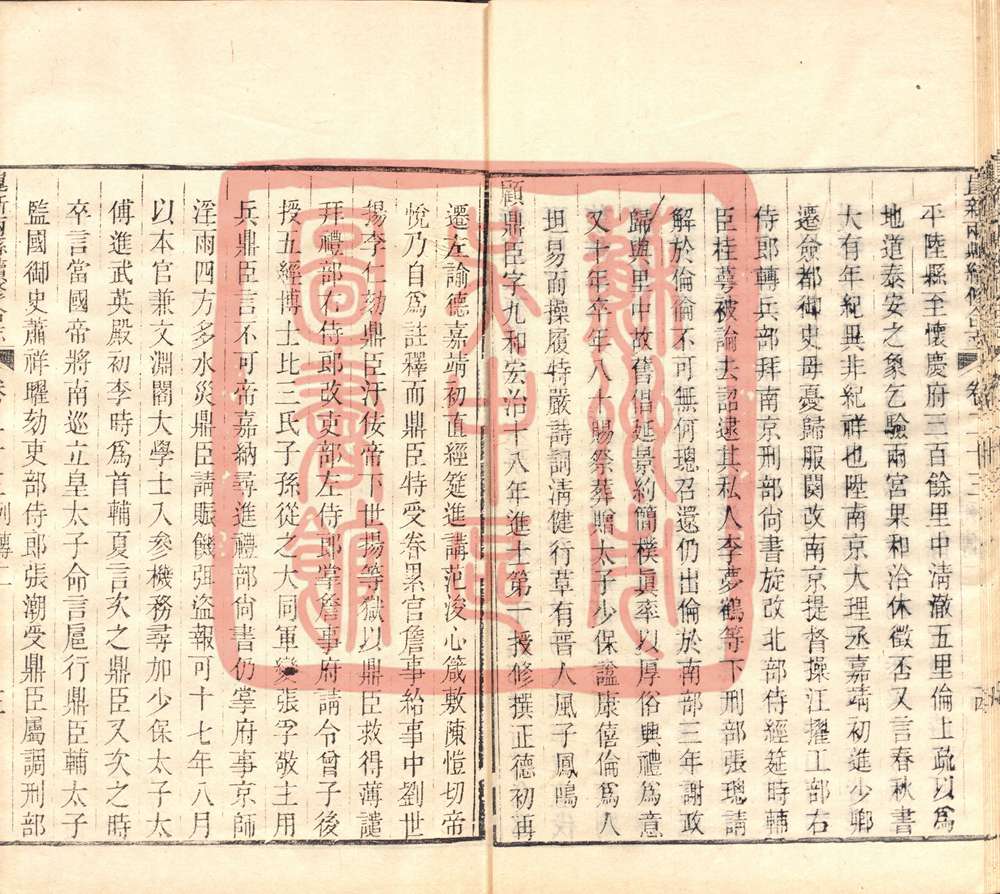 平陸縣至懷慶府三百餘里中清澈五里倫上疏以爲
地道泰安之象乞驗兩宮果和洽休徵否又言春秋書
大有年紀異非紀祥也陞南京大理丞嘉靖初進少卿
遷僉都御史母憂歸服闋改南京提督操江擢工部右
侍郎轉兵部拜南京刑部尚書旋改北部侍經筵時輔
臣桂萼被論去詔逮其私人李夢鶴等下刑部張璁請
解於倫倫不可無何璁召還仍出倫於南部三年謝政
歸與里中故舊倡延景約簡樸眞率以厚俗興禮爲意
又十年卒年八十賜祭葬贈太子少保諡康僖倫爲人
坦易而操履特嚴詩詞清健行草有晋人風子鳳鳴
顧鼎臣字九和宏治十八年進士第一授修撰正德初再
遷左諭德嘉靖初直經筵進講范浚心箴敷陳愷切帝
悅乃自爲註釋而鼎臣特受眷累官詹事給事中劉世
揚李仁劾鼎臣汙佞帝下世揚等獄以鼎臣救得薄譴
拜禮部右侍郎改吏部左侍郎掌詹事府請令曾子後
授五經博士比三氏子孫從之大同軍變張孚敬主用
兵鼎臣言不可帝嘉納尋進禮部尚書仍掌府事京師
淫雨四方多水災鼎臣請賑饑弭盜報可十七年八月
以本官兼文淵閣大學士入參機務尋加少保太子太
傅進武英殿初李時爲首輔夏言次之鼎臣又次之時
卒言當國帝將南巡立皇太子命言扈行鼎臣輔太子
監國御史蕭祥曜劾吏部侍郎張潮受鼎臣屬調刑部